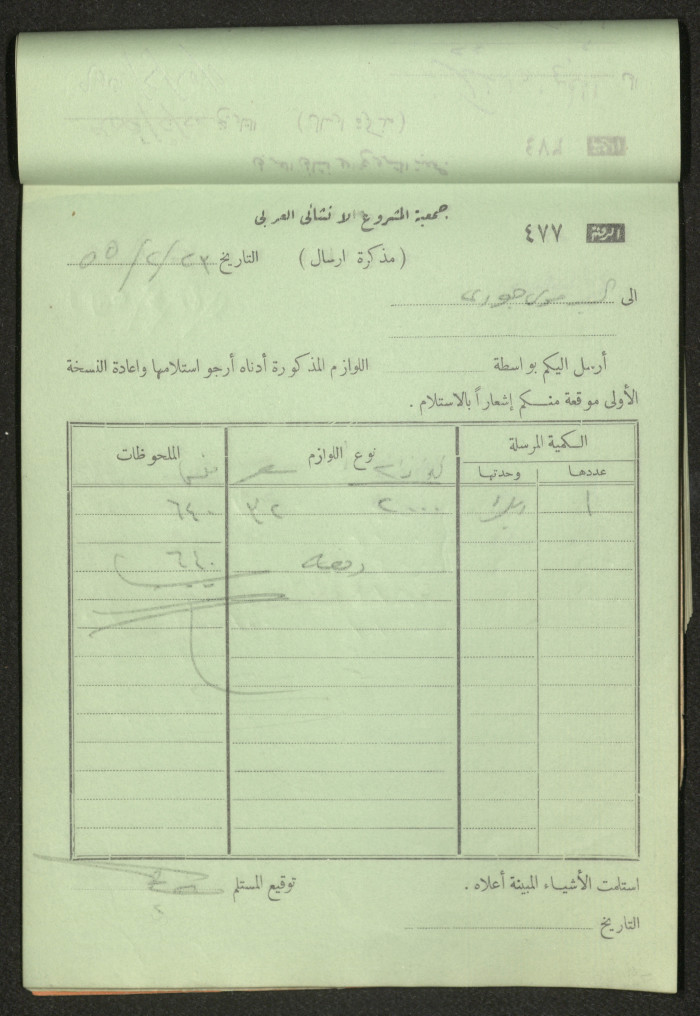 جمعية المشروع الانشائى العربى
الرقم ٤٧٧
(مذكرة ارسال)
التاريخ ٢٣/٢/٥٥
الى السيد موسى
أرسل اليكم بواسطة اللوازم المذكورة أدناه أرجو استلامها واعادة النسخة
الأولى موقعة منكم إشعاراً بالاستلام .
الكمية المرسلة نوع اللوازم الملحوظات
عددها وحدتها سعر
١ ٢٠٠٠ ٣٢ ٦٤٠
دفعه ٦٤٠
استلمت الأشياء المبينة أعلاه . توقيع المستلم
التاريخ